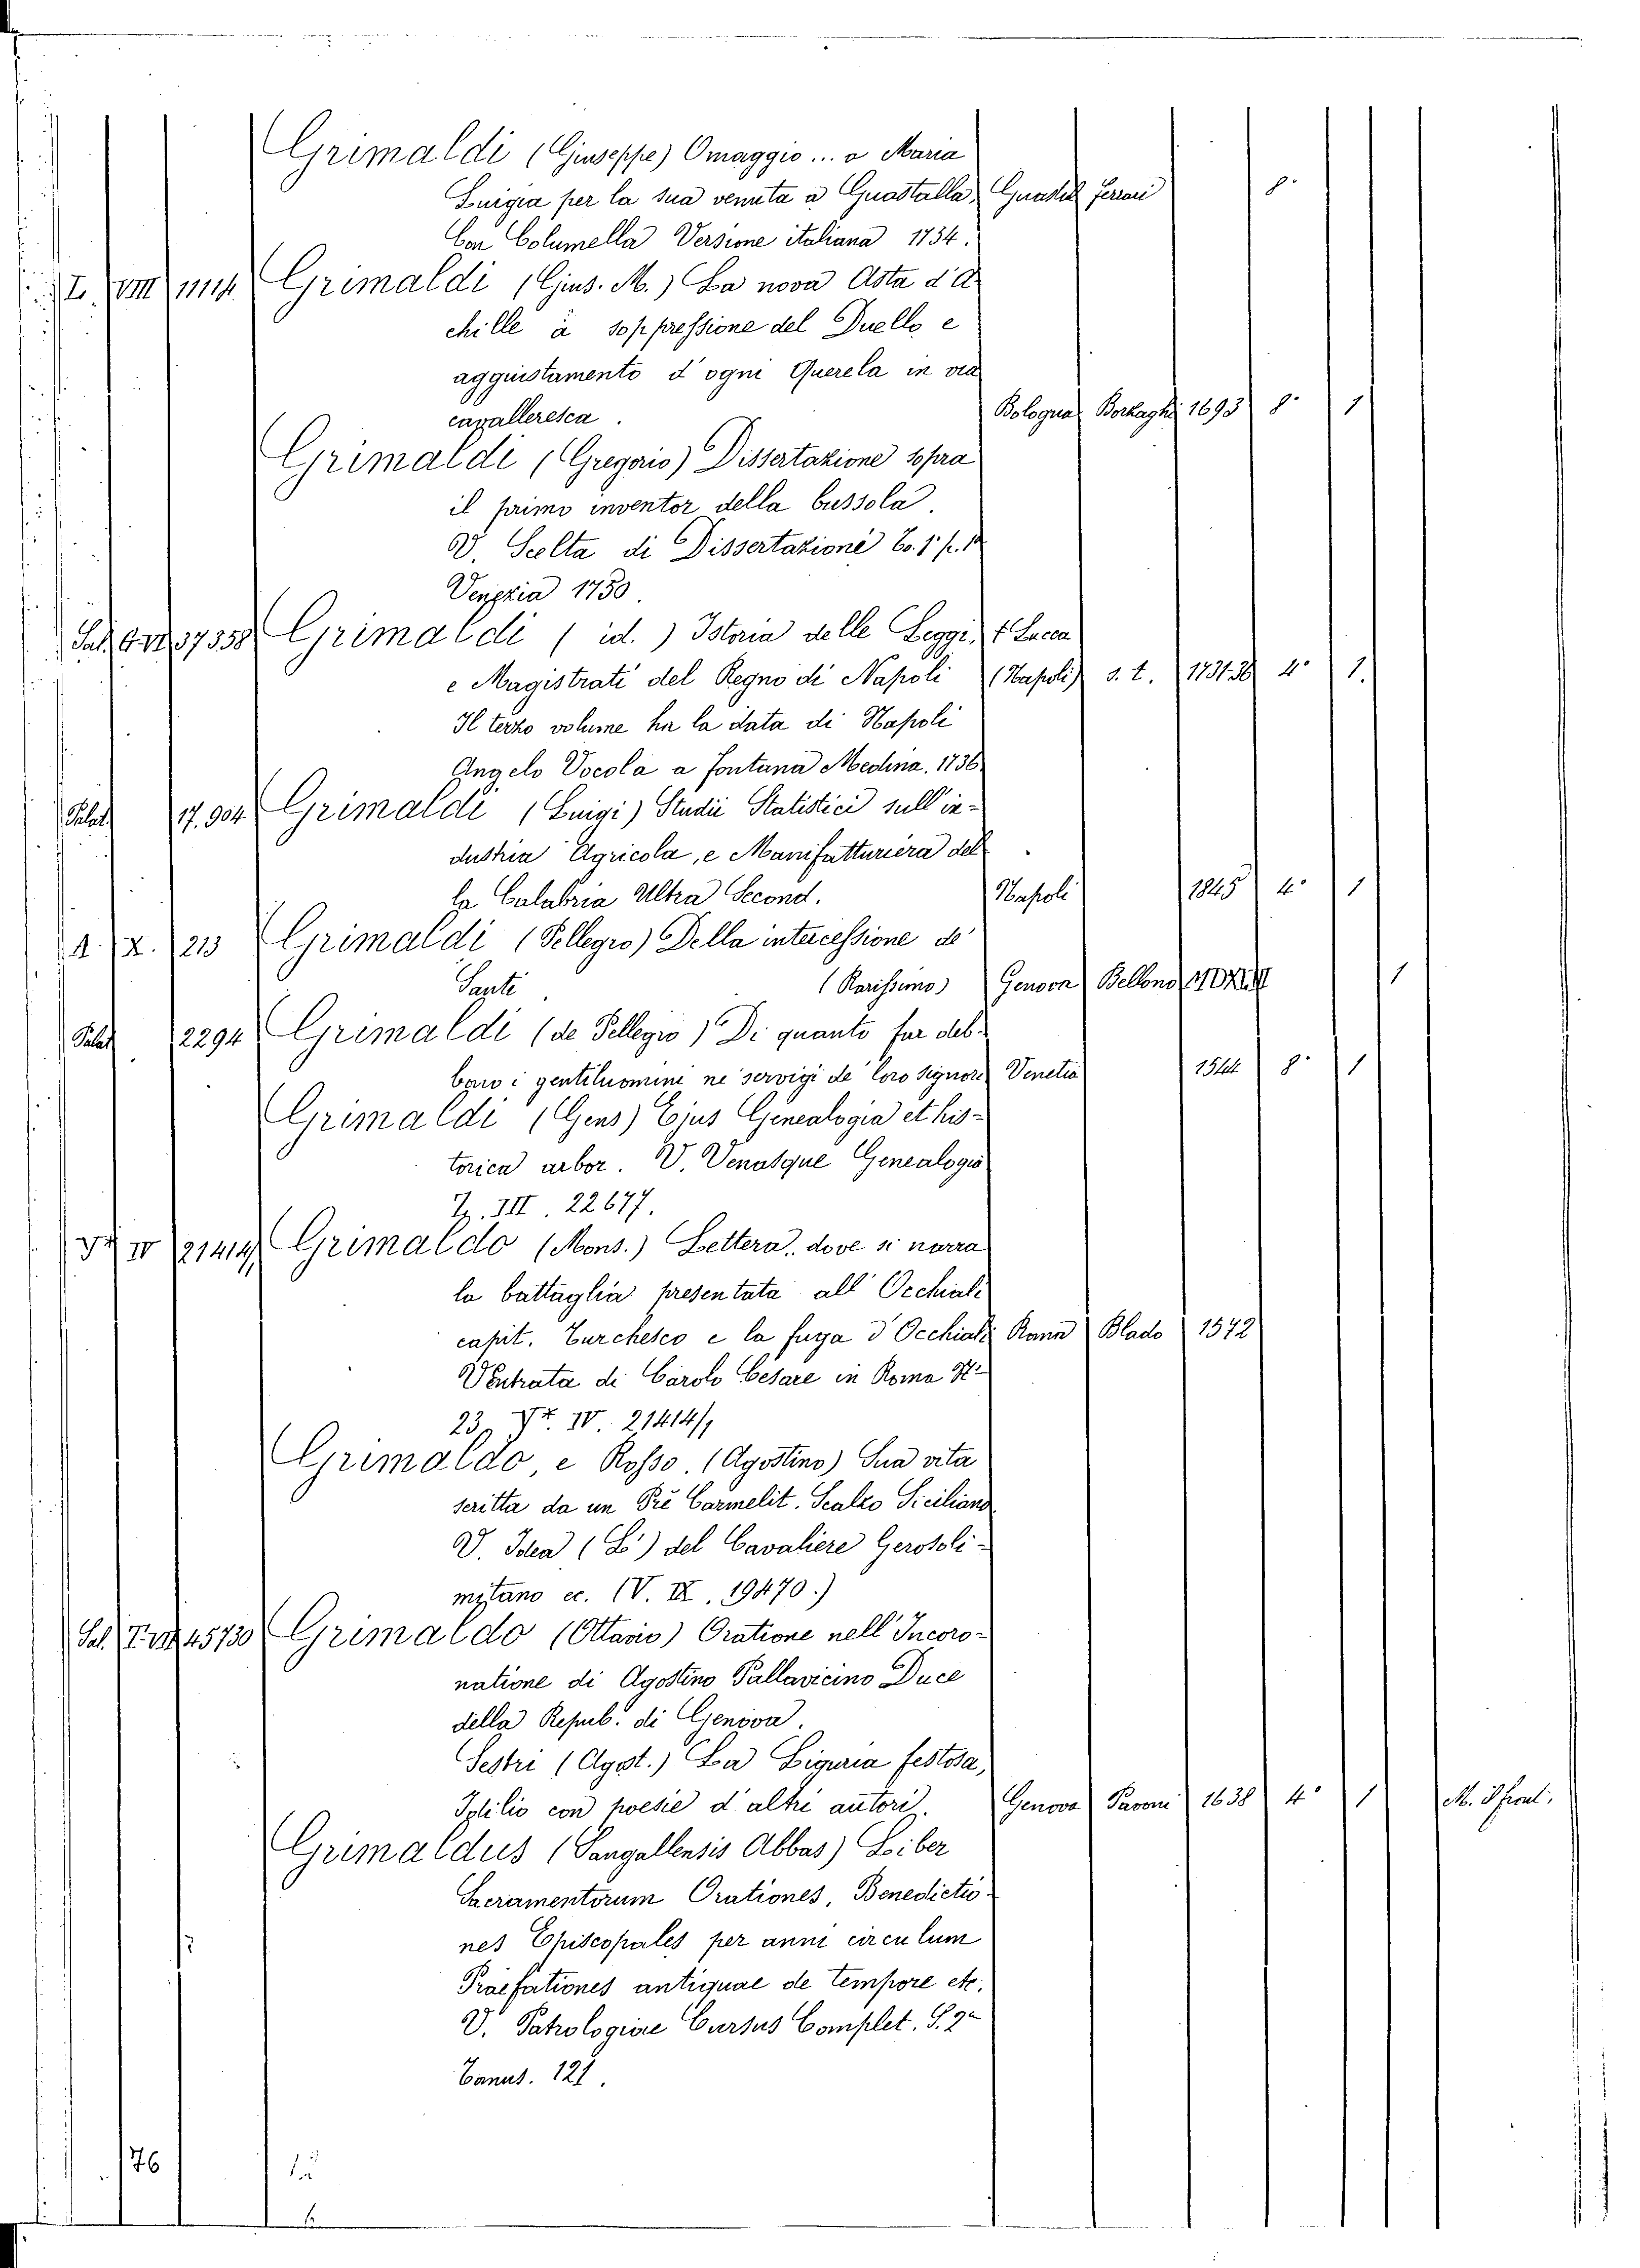 Grimaldi (Giuseppe) Omaggio ... a Maria
Luigia per la sua venuta a Guastalla, Guastal Ferrari 8.
Con Columella Versione italiana 1754.
L. VIII 11114 Grimaldi (Gius. M.) La nova Asta d'A
chille à soppressione del Duello e
aggiustamento d'ogni Querela in via
cavalleresca. Bologna 1693 8° 1
Grimaldi (Gregorio) Dissertazione sopra
il primo inventor della bussola.
V. Scelta di Dissertazione To. 1° p. 1a
Venezia 1750.
37358 Grimaldi (id.) Istoria delle Leggi, + Lucca
e Magistrati del Regno di Napoli (Napoli) s. t. 1731.36 4° 1.
Il terzo volume ha la data di Napoli
Angelo Vocola a fontana Medina. 1736
Palat. 17.904 Grimaldi (Luigi) Studii Statistici sull'in-
dustria Agricola, e Manifatturiera del
la Calabria Ultra Second. Napoli 1845 4° 1
A. X. 213 Grimaldi (Pellegro) Della intercessione de'
Santi (Rarissimo) Genova Bellono 1
Palat 2294 Grimaldi (de Pellegro) Di quanto far deb-
bano i gentiluomini ne' servigi de' loro signori Venetia 1544 8° 1
Grimaldi (Gens) Ejus Genealogia et his-
torica arbor. V. Venasque Genealogia
Z. III. 22677.
IV 21414 Grimaldo (Mons.) Lettera, dove si narra
la battaglia presentata all'Occhiali
capit. Turchesco e la fuga d'Occhiali Roma Blado 1572
V. Entrata di Carolo Cesare in Roma N°
23, IV. 21414/1
Grimaldo, e Rosso. (Agostino) Sua vita
scritta da un Pre Carmelit. Scalzo Siciliano
V. Idea (L') del Cavaliere Gerosoli-
mitano ec. (V. IX. 19470.)
Sal. 45730 Grimaldo (Ottavio) Oratione nell'Incoro-
natione di Agostino Pallavicino Duce
della Repub. di Genova.
Sestri (Agost.) La Liguria festosa,
Idilio con poesie d'altri autori. Genova Pavoni 1638 4° 1
Grimaldus (Sangallensis Abbas) Liber
Sacramentorum Orationes, Benedictio-
nes Episcopales per anni circulum
Praefationes antiquae de tempore etc.
V. Patrologiae Cursus Complet. S. 2a
Tomus. 121.
176